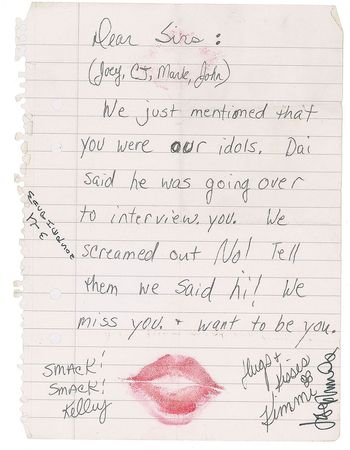 Dear Sirs :
(Joey, CJ, Mark, John)
We just mentioned that
you were our idols. Dai
said he was going over
to interview you. We
screamed out No! Tell
them we said hi! We
miss you. + want to be you.
SMACK!
SMACK!
Kelley
Hugs +
Kisses
Kimmi